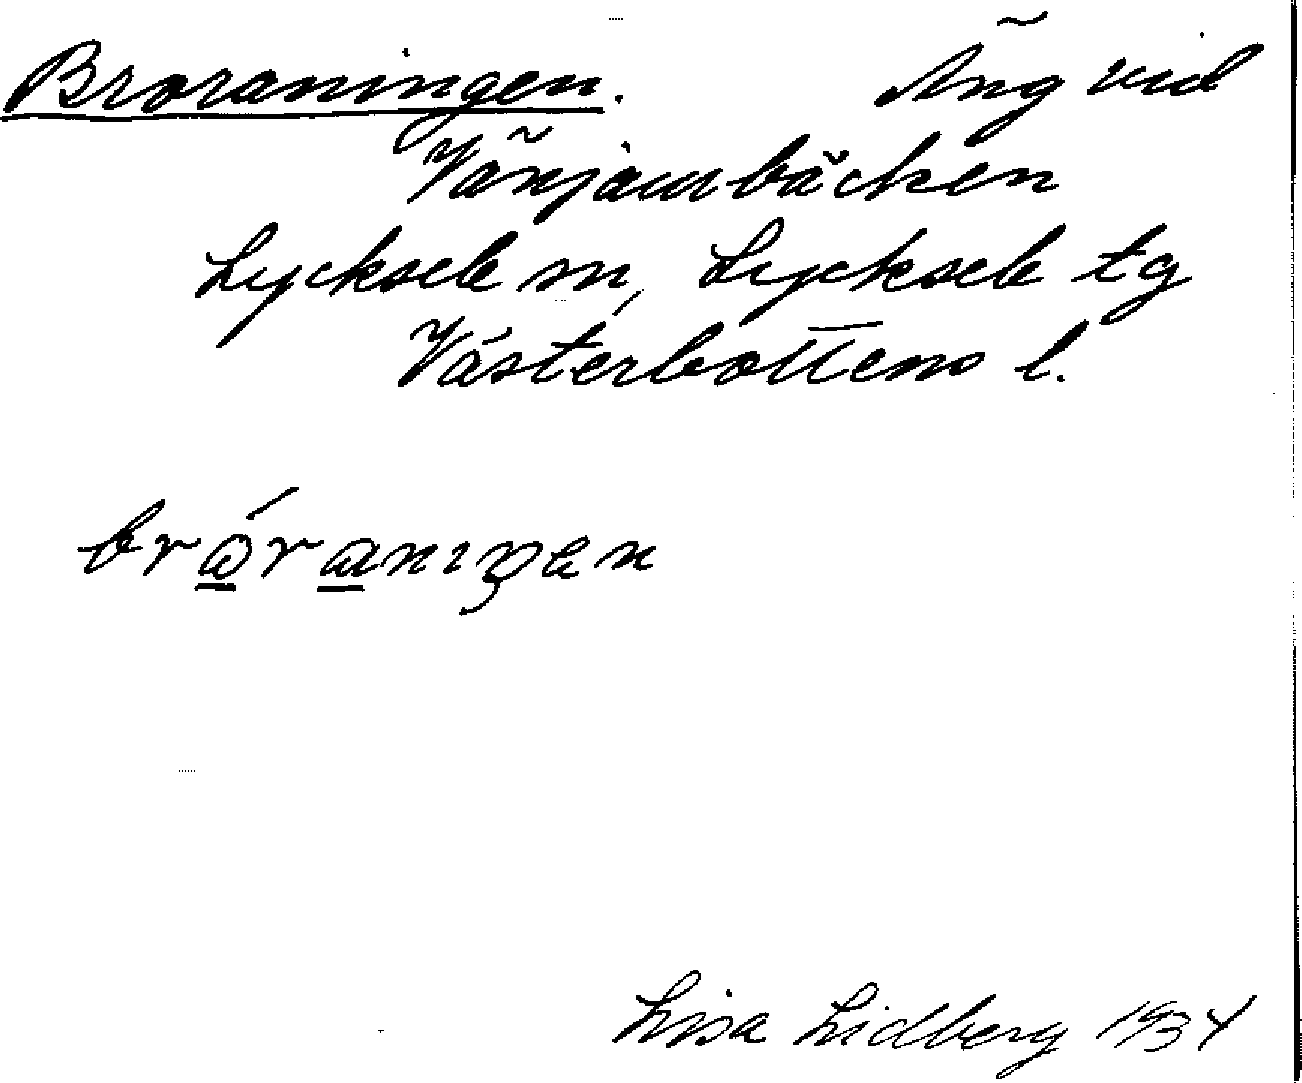 Broraningen. Äng vid
Vänjaurbäcken
Lycksele m, Lycksele tg
Västerbottens l.
brǿranıŋen
Lisa Lidberg 1934